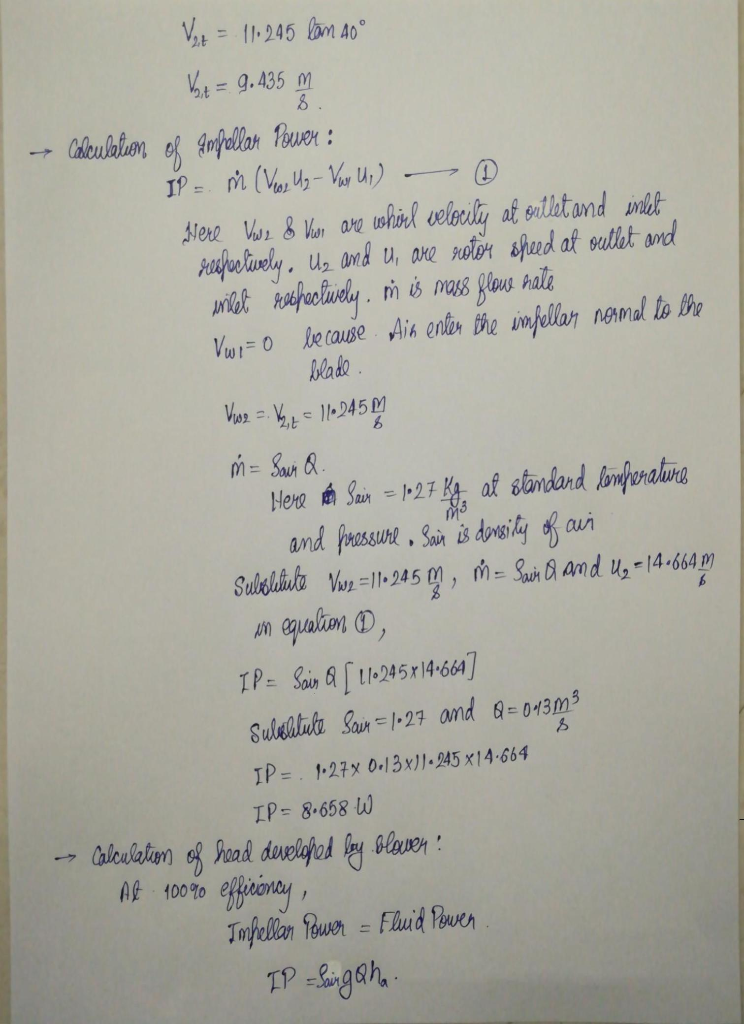 V₂,t = 11.245 tan 40°
V₂,t = 9.435 m/s.
→ Calculation of Impellar Power :
IP = ṁ (Vw2 U2 - Vw1 U1) → ①
Here Vw2 & Vw1 are whirl velocity at outlet and inlet
respectively. U2 and U1 are rotor speed at outlet and
inlet respectively. ṁ is mass flow rate
Vw1 = 0 because Air enter the impellar normal to the
blade.
Vw2 = V₂,t = 11.245 m/s
ṁ = ρair Q.
Here ρair = 1.27 Kg/m³ at standard temperature
and pressure. ρair is density of air
Substitute Vw2 = 11.245 m/s, ṁ = ρair Q and U2 = 14.664 m/s
in equation ①,
IP = ρair Q [11.245 x 14.664]
Substitute ρair = 1.27 and Q = 0.13 m³/s
IP = 1.27 x 0.13 x 11.245 x 14.664
IP = 8.658 W
→ Calculation of head developed by blower :
At 100% efficiency,
Impellar Power = Fluid Power.
IP = ρair g Q ha.